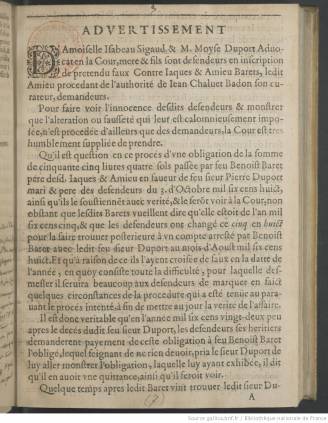 3
ADVERTISSEMENT
DAmoiselle Isabeau Sigaud, & M. Moyse Duport Advo-
cat en la Cour, mere & fils sont defendeurs en inscription
de pretendu faux Contre Iaques & Amieu Barets, ledit
Amieu procedant de l'authorité de Iean Chaluet Badon son cu-
rateur, demandeurs.
Pour faire voir l'innocence desdits defendeurs & monstrer
que l'alteration ou fausseté qui leur est calomnieusement impo-
sée, n'est procedée d'ailleurs que des demandeurs, la Cour est tres
humblement suppliée de prendre.
Qu'il est question en ce procés d'vne obligation de la somme
de cinquante cinq liures quatre sols passée par feu Benoist Baret
pere desd. Iaques & Amieu en faueur de feu sieur Pierre Duport
mari & pere des defendeurs du 3. d'Octobre mil six cens huict,
ainsi qu'ils le soustiennẽt auec verité, & le serõt voir à la Cour, non
obstant que lesdits Barets vueillent dire qu'elle estoit de l'an mil
six cens cinq, & que les defendeurs ont changé ce cinq en huict
pour la faire trouuer posterieure à vn compte arresté par Benoist
Baret auec ledit feu sieur Duport au mois d'Aoust mil six cens
huict. Et qu'à raison de ce ils ayent croisée de faux en la datte de
l'année, en quoy consiste toute la difficulté, pour laquelle des-
mesler il seruira beaucoup aux defendeurs de marquer en faict
quelques circonstances de la procedure qui a esté tenuë au para-
uant le procés intenté, à fin de mettre au jour la verité de l'affaire.
Il est donc veritable qu'en l'année mil six cens vingt-deux peu
apres le decés dudit feu sieur Duport, les defendeurs ses heritiers
demanderent payement de ceste obligation à feu Benoist Baret
l'obligé, lequel feignant de ne rien deuoir, pria le sieur Duport de
luy aller monstrer l'obligation, laquelle luy ayant exhibée, il dit
qu'il en auoit vne quittance, ainsi qu'il feroit voir.
Quelque temps apres ledit Baret vint trouuer ledit sieur Du-
A
Source gallica.bnf.fr / Bibliothèque nationale de France